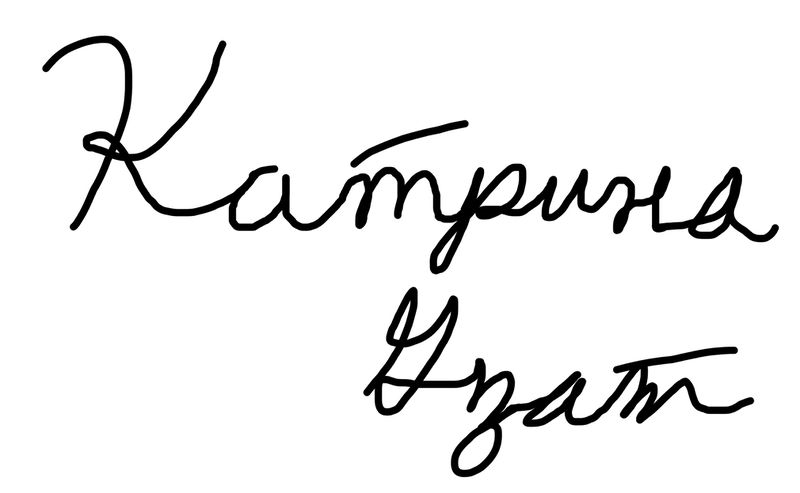 Катрина
Узат